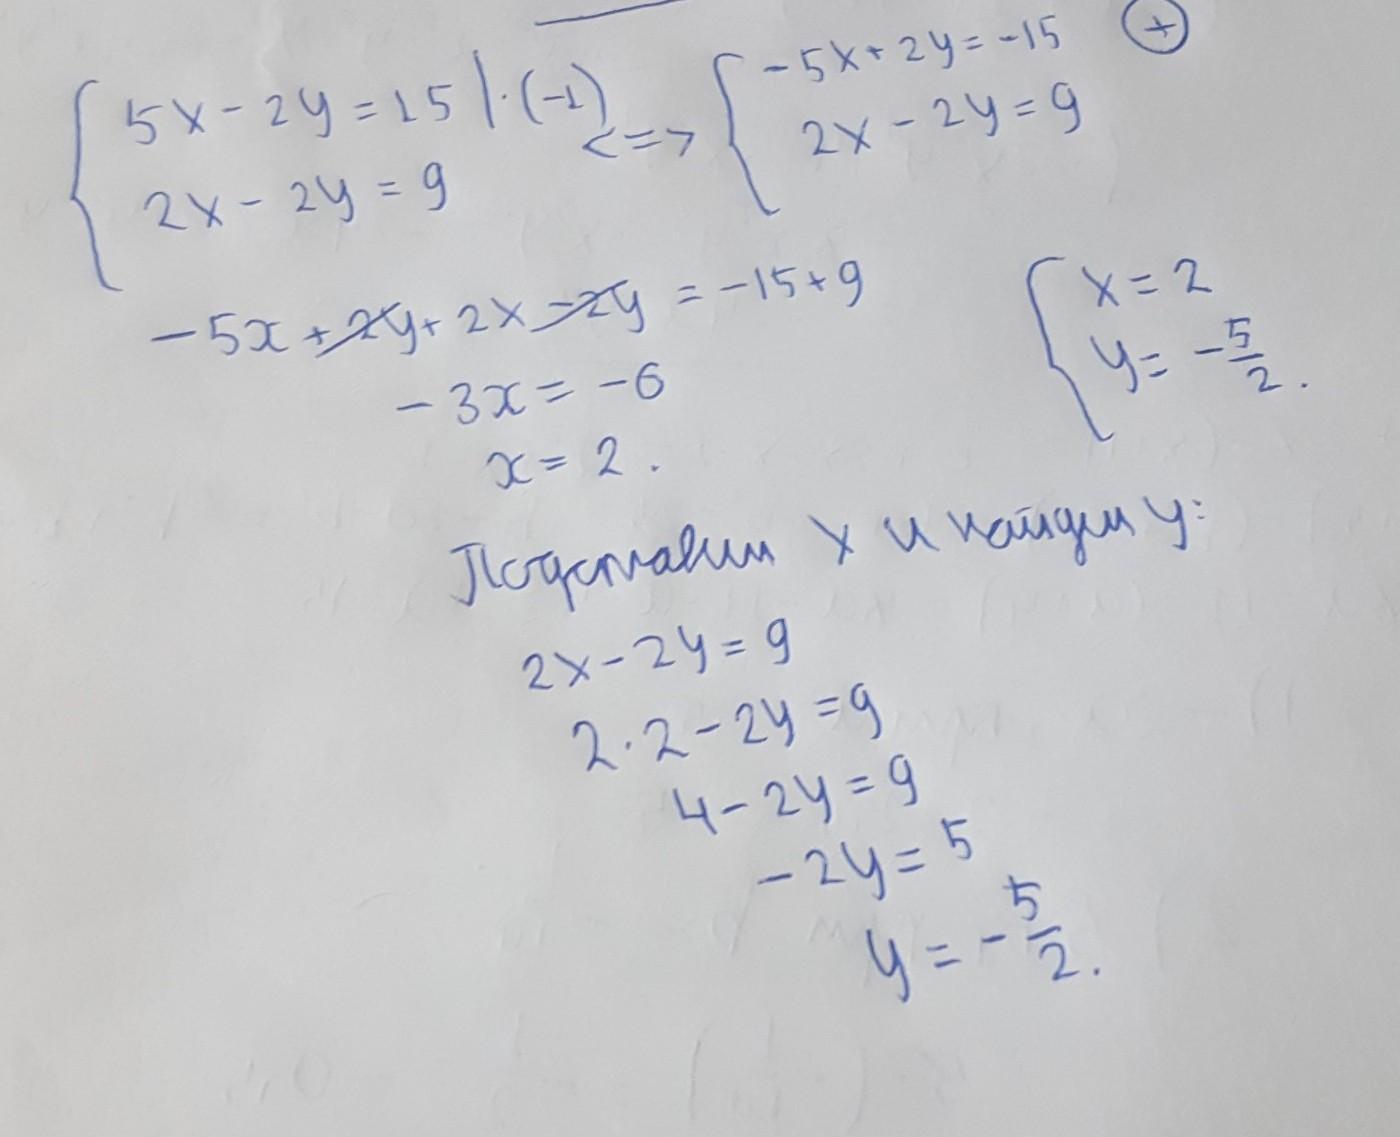 { 5x - 2y = 15 | · (-1) <=> { -5x + 2y = -15 (+)
2x - 2y = 9 2x - 2y = 9
-5x + 2y + 2x - 2y = -15 + 9
-3x = -6
x = 2.
{ x = 2
y = -5/2.
Подставим x и найдём y:
2x - 2y = 9
2 · 2 - 2y = 9
4 - 2y = 9
-2y = 5
y = -5/2.